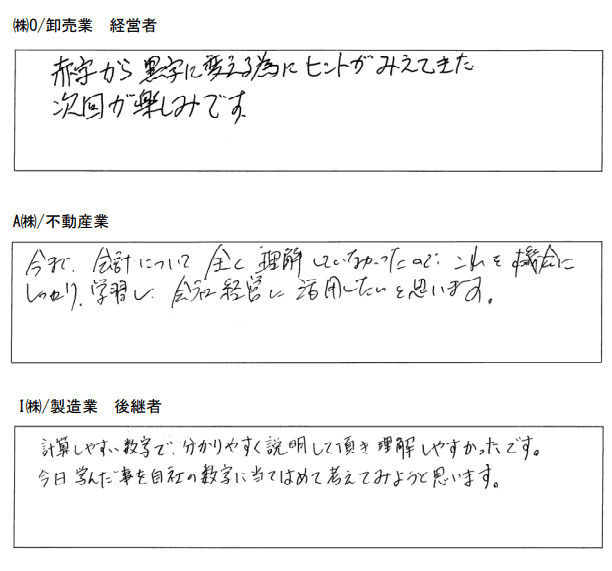 ㈱O/卸売業　経営者
赤字から黒字に変える為にヒントがみえてきた
次回が楽しみです。
A㈱/不動産業
今まで、会計について全く理解していなかったので、これを機会に
しっかり、学習し、会社経営に活用したいと思います。
I㈱/製造業　後継者
計算しやすい数字で、分かりやすく説明して頂き理解しやすかったです。
今日学んだ事を自社の数字に当てはめて考えてみようと思います。